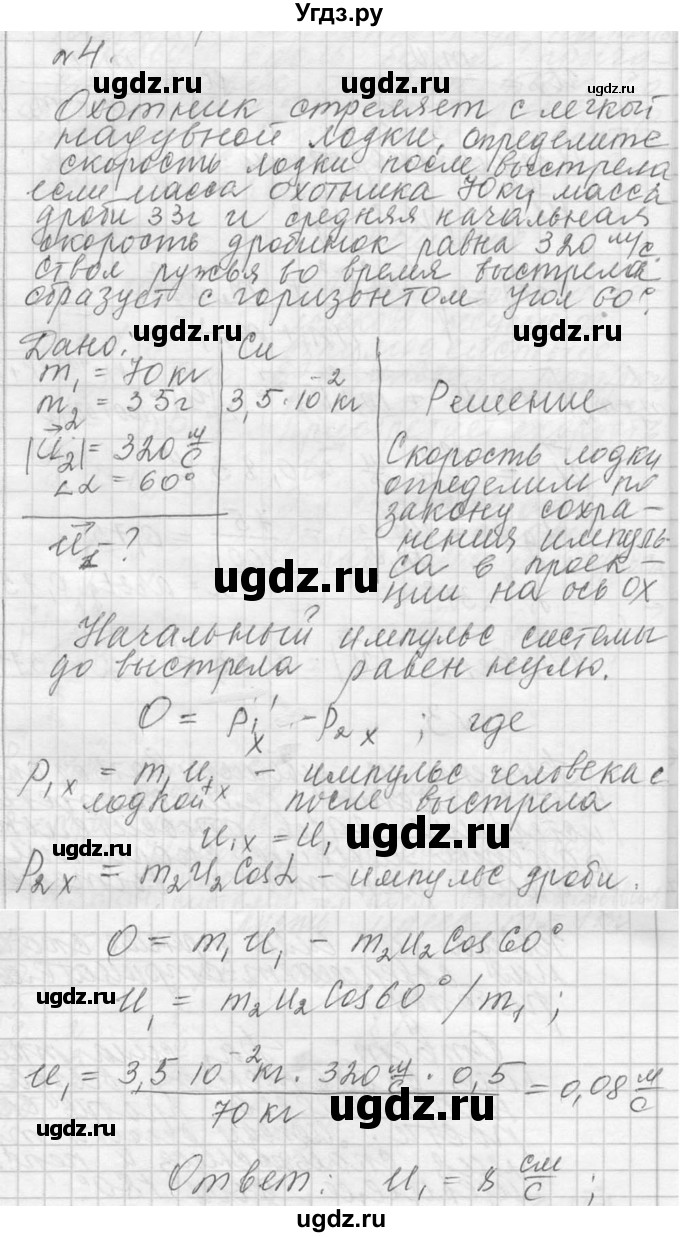 Угдз.ру
N4.
ugdz.ru ugdz.ru
Охотник стреляет с легкой
надувной лодки, определите
скорость лодки после выстрела
если масса охотника 70кг, масса
ugdz.ru ugdz.ru
дроби 33г и средняя начальная
скорость дробинок равна 320 м/с.
ствол ружья во время выстрела
образует с горизонтом угол 60°?
ugdz.ru ugdz.ru
Дано: Си
m₁ = 70 кг
m₂ = 35г 3,5·10⁻² кг Решение
|u⃗₂| = 320 м/с Скорость лодки
∠α = 60° определим по
закону сохра-
u⃗₁ - ? нения импуль-
ugdz.ru са в проек-
ции на ось ОХ
Начальный импульс системы
до выстрела равен нулю.
0 = P₁ₓ' - P₂ₓ ; где
P₁ₓ = m₁u₁ₓ - импульс человека с
лодкой после выстрела
u₁ₓ = u₁ ugdz.ru
P₂ₓ = m₂u₂cosα - импульс дроби.
0 = m₁u₁ - m₂u₂cos60°
ugdz.ru ugdz.ru
u₁ = m₂u₂cos60°/m₁ ;
u₁ = 3,5 10⁻² кг · 320 м/с · 0,5 / 70 кг = 0,08 м/с
ugdz.ru ugdz.ru
Ответ: u₁ = 8 см/с ;
ugdz.ru